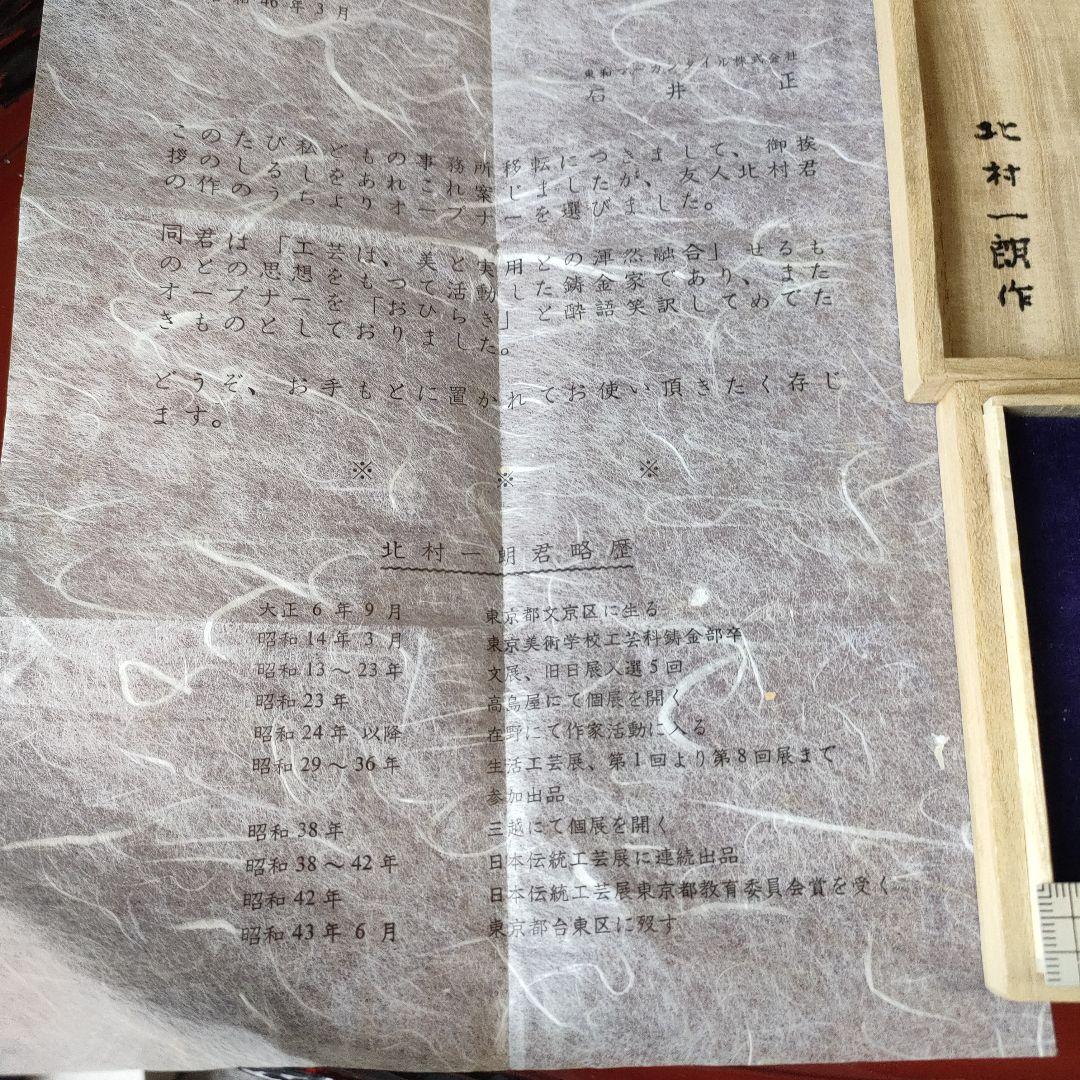 和 46 年 3 月
東和マーカンタイル株式会社
石井 正
このたび私どもの事務所移転につきまして、御挨
拶のしるしをあれこれ案じましたが、友人北村君
の作のうちよりオープナーを選びました。
同君は「工芸は、美と実用との渾然融合」せるも
のとの思想をもつて活動した鋳金家であり、また
オープナーを「おひらき」と酔語笑訳してめでた
きものとしておりました。
どうぞ、お手もとに置かれてお使い頂きたく存じ
ます。
※ ※ ※
北村一朗君略歴
大正 6 年 9 月 東京都文京区に生る
昭和 14 年 3 月 東京美術学校工芸科鋳金部卒
昭和 13 〜 23 年 文展、旧日展入選 5 回
昭和 23 年 高島屋にて個展を開く
昭和 24 年 以降 在野にて作家活動に入る
昭和 29 〜 36 年 生活工芸展、第 1 回より第 8 回展まで
参加出品
昭和 38 年 三越にて個展を開く
昭和 38 〜 42 年 日本伝統工芸展に連続出品
昭和 42 年 日本伝統工芸展東京都教育委員会賞を受く
昭和 43 年 6 月 東京都台東区に歿す
北村一朗作